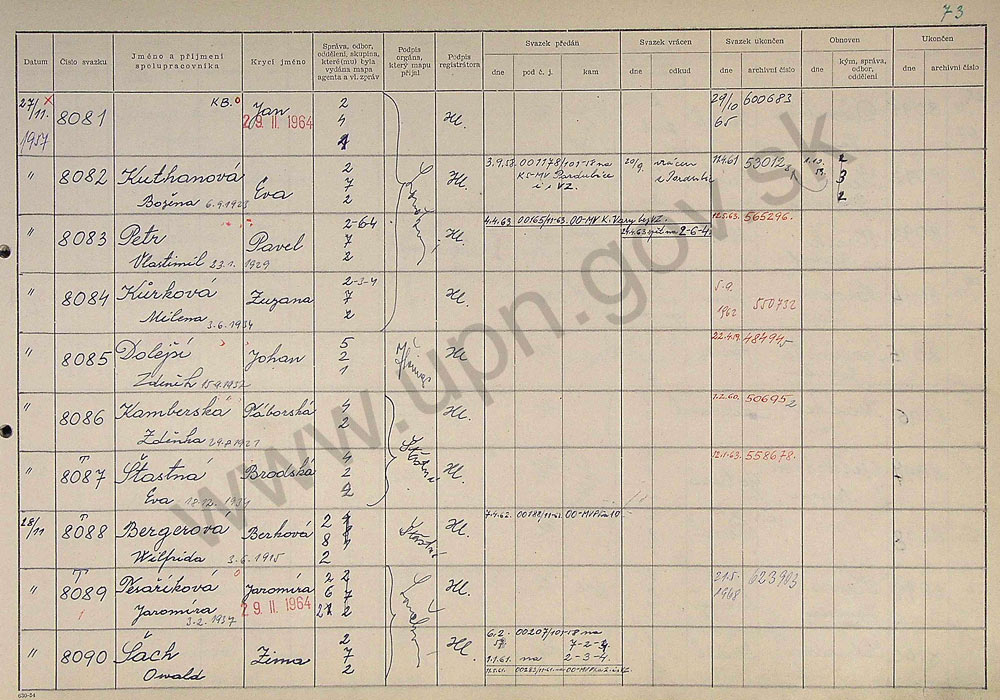 73
Datum
Číslo svazku
Jméno a příjmení
spolupracovníka
Krycí jméno
Správa, odbor,
oddělení, skupina,
které(mu) byla
vydána mapa
agenta a vl. zpráv
Podpis
orgána,
který mapu
přijal
Podpis
registrátora
Svazek předán
dne
pod č. j.
kam
Svazek vrácen
dne
odkud
Svazek ukončen
dne
archivní číslo
Obnoven
dne
kým, správa,
odbor,
oddělení
Ukončen
dne
archivní číslo
27/11. 1957
8081
KB.
Jan
29. II. 1964
2
4
Hl.
29/10
65
600683
"
8082
Kuthanová
Božena 6.9.1923
Eva
2
7
2
Hl.
3.9.58. 001178/101-18 na
KS-MV Pardubice
20/9.
vrácen
z Pardubic
12.4.61
53012
2
3
2
"
8083
Petr
Vlastimil 23.1.1929
Pavel
2-6-4
7
2
Hl.
4.4.63 00165/11-63. OO-MV K. Vary bez VZ.
zpět na 2-6-4.
12.5.63.
565296.
"
8084
Kůrková
Milena 3.6.1934
Zuzana
2-3-4
7
2
Hl.
5.9.
1962
550732
"
8085
Dolejší
Zdeněk 15.9.1932
Johan
5
2
1
Hl.
48494
"
8086
Kamberská
Zdeňka 29.8.1921
Táborská
4
2
Hl.
1.2.60.
50695
"
8087
Šťastná
Eva 18.12.1934
Brodská
4
2
2
Šťastná
Hl.
12.1.63.
558678.
28/11
8088
Bergerová
Wilfrida 3.6.1915
Berková
2
8
2
Šťastná
Hl.
7.4.62.
"
8089
Pesaříková
Jaromíra
3.2.1937
Jaromíra
29. II. 1964
2 2
6 7
2
Hl.
21.5.
1968
623903
"
8090
Šach
Oswald
Zima
2
7
2
Hl.
6.2.
00207/101-18 na
7-2-
1.1.61. na 2-3-4.
www.upn.gov.sk
630-54